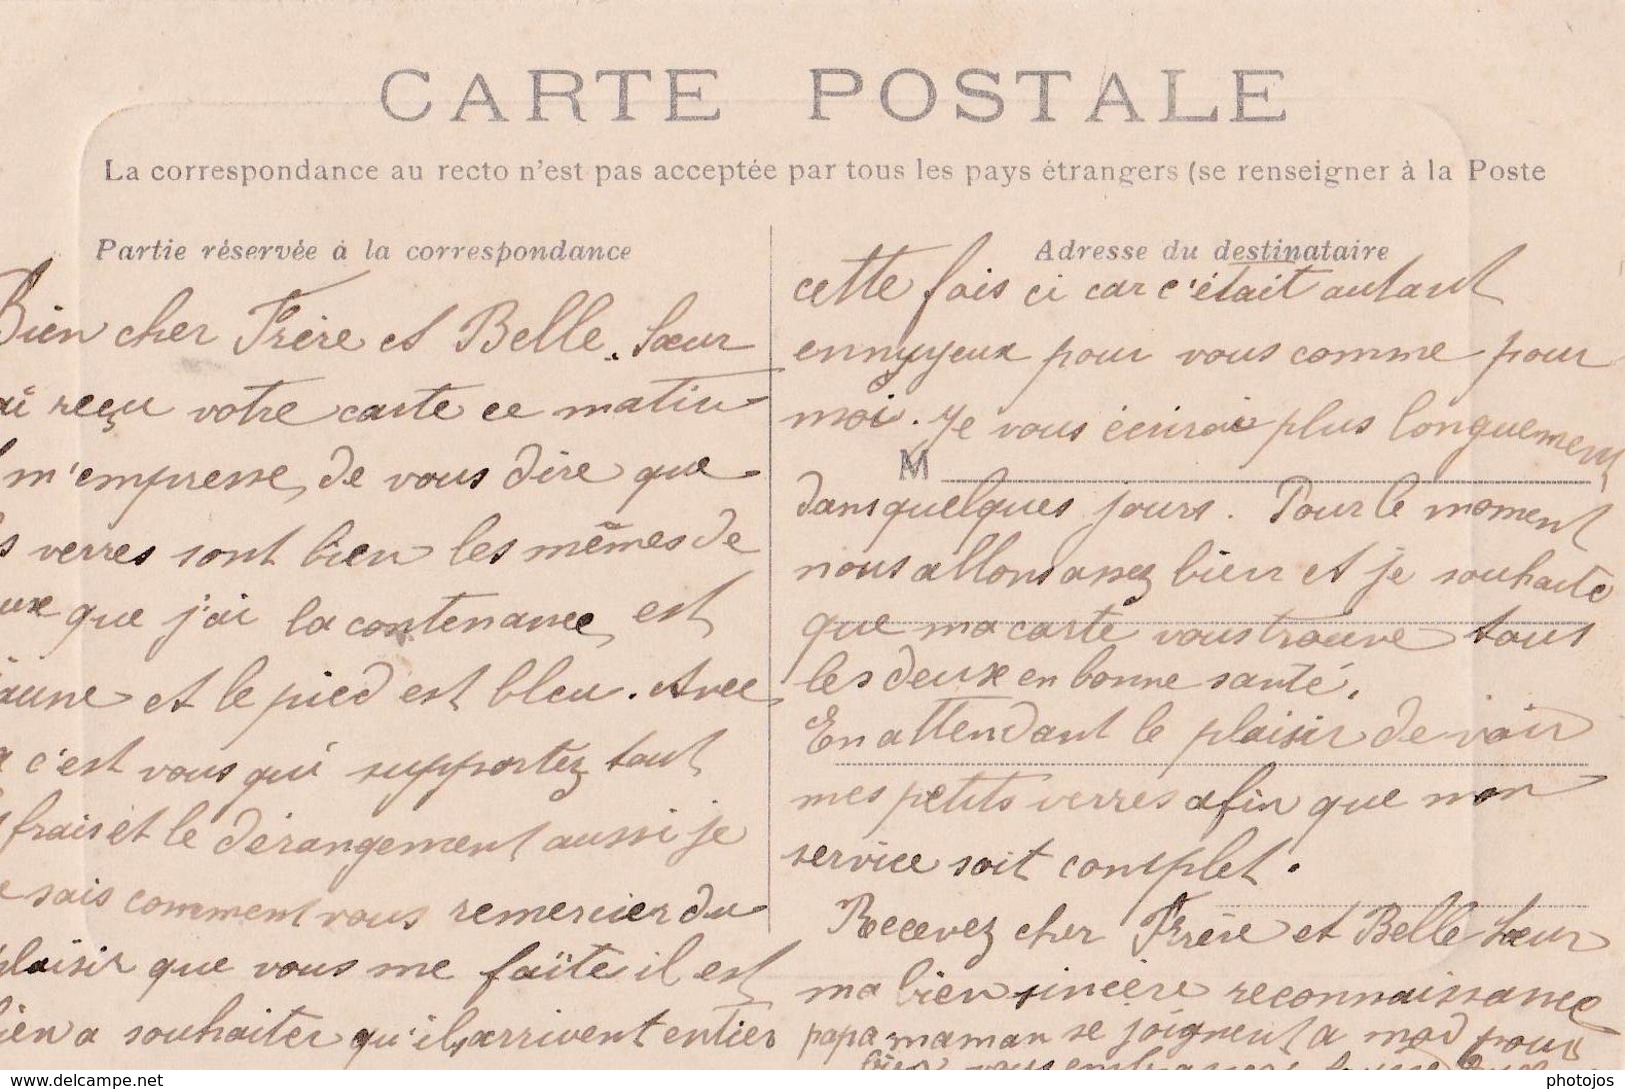 CARTE POSTALE
La correspondance au recto n'est pas acceptée par tous les pays étrangers (se renseigner à la Poste
Partie réservée à la correspondance
Bien cher Frère et Belle. Sœur
ai reçu votre carte ce matin
m'empresse de vous dire que
s verres sont bien les mêmes de
ux que j'ai la contenance est
aune et le pied est bleu. Avec
c'est vous qui supportez tout
frais et le dérangement aussi je
e sais comment vous remercier du
plaisir que vous me faïte il est
ien a souhaiter qu'ils arrivent entier
Adresse du destinataire
cette fois ci car c'était autant
ennuyeux pour vous comme pour
moi. Je vous écrirai plus longuement
M
dans quelques jours. Pour le moment
nous allons assez bien et je souhaite
que ma carte vous trouve tous
les deux en bonne santé.
En attendant le plaisir de voir
mes petits verres afin que mon
service soit complet.
Recevez cher Frère et Belle Sœur
ma bien sincère reconnaissance
papa maman se joignent a moi pour
bien vous
delcampe.net
photojos